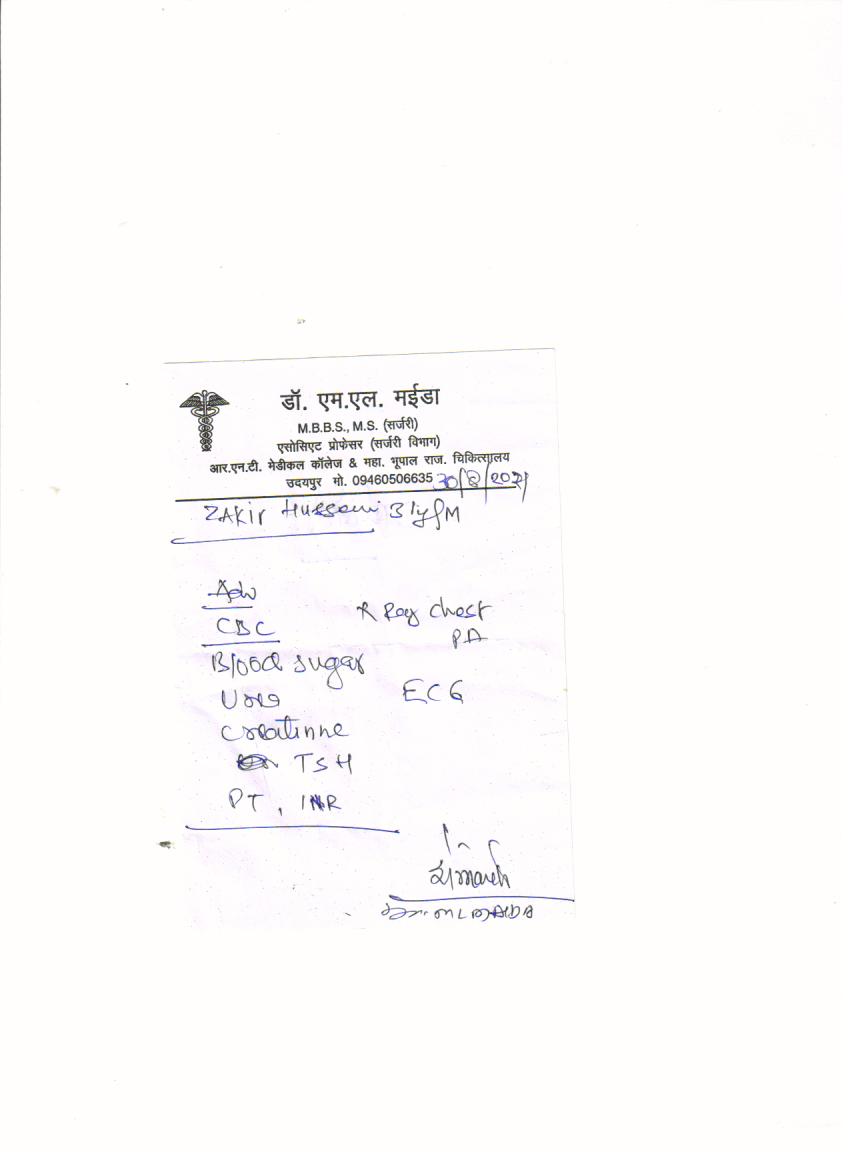 डॉ. एम.एल. मईडा
M.B.B.S., M.S. (सर्जरी)
एसोसिएट प्रोफेसर (सर्जरी विभाग)
आर.एन.टी. मेडीकल कॉलेज & महा. भूपाल राज. चिकित्सालय
उदयपुर मो. 09460506635
ZAKir Hussain
Adv
CBC
X Ray Chest
PA
Blood sugar
Urea
ECG
Creatinne
TSH
PT, INR
ML MAIDA